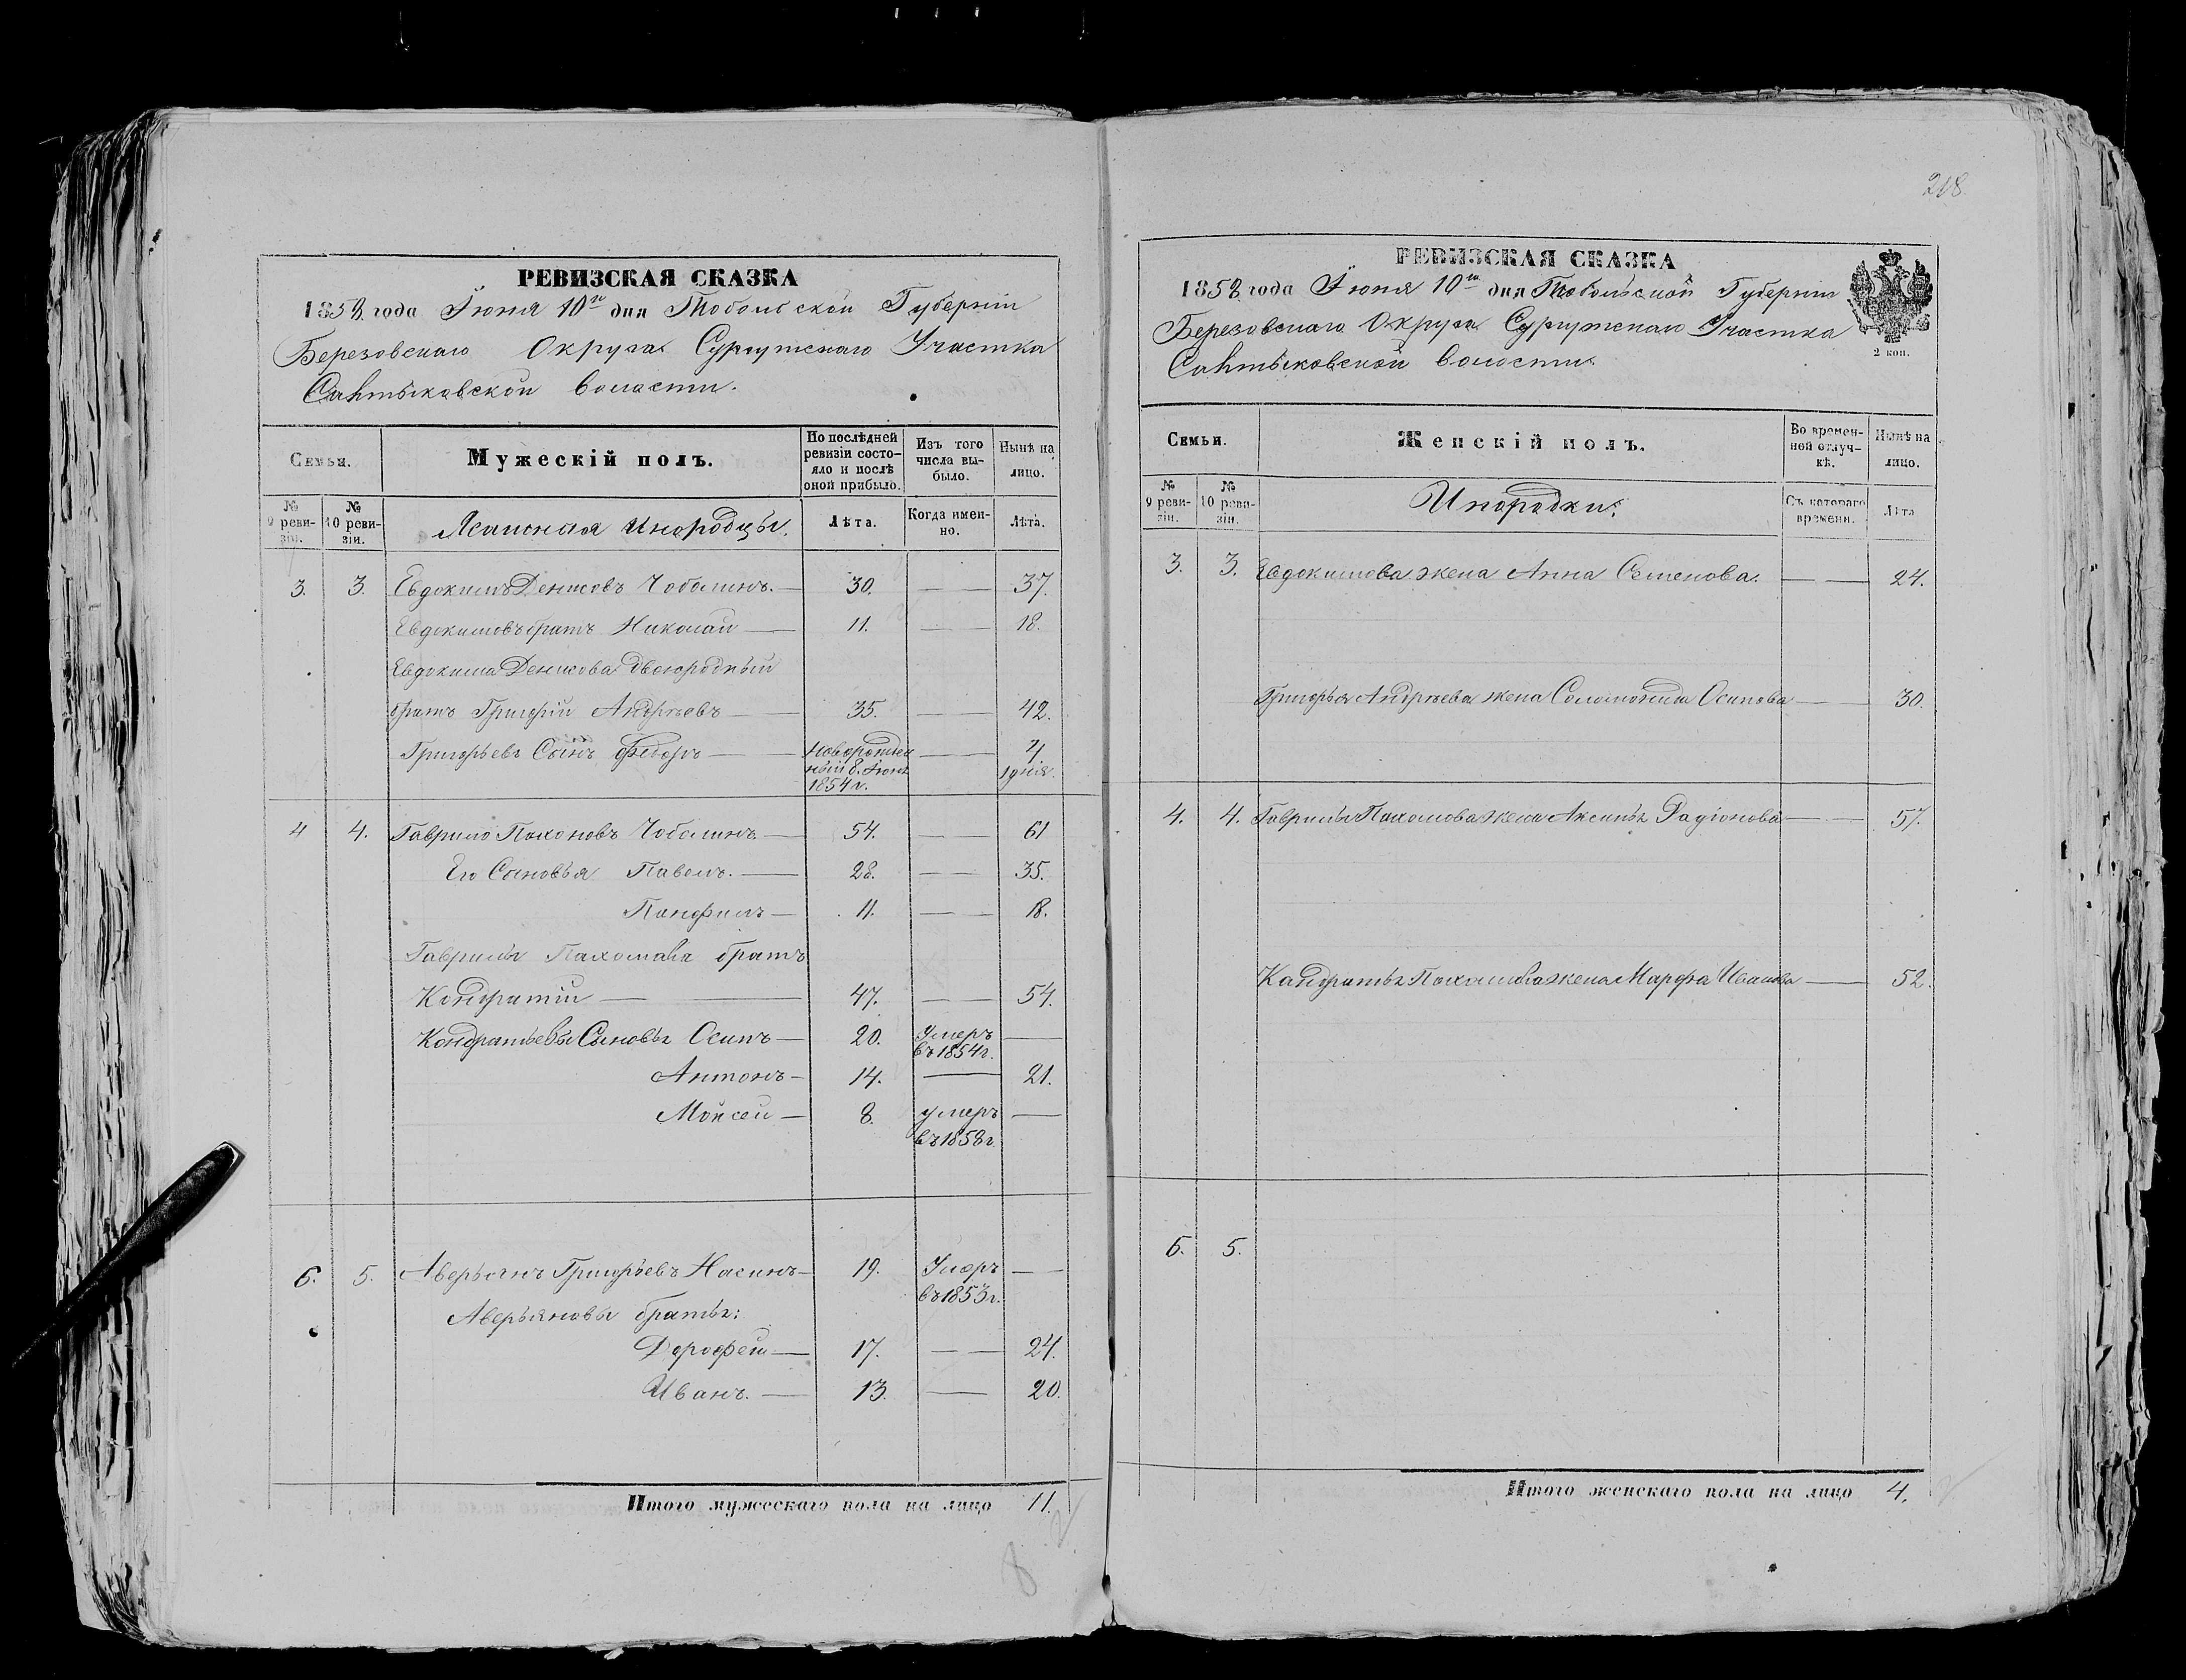 218
РЕВИЗСКАЯ СКАЗКА
1858 года Июня 10го дня Тобольской Губерніи
Березовскаго Округа Сургутскаго Участка
волости.
Семья.
Мужескій полъ.
По послѣдней ревизіи состояло и послѣ оной прибыло.
Изъ того числа выбыло.
Нынѣ на лицо.
№ 9 ревизіи.
№ 10 ревизіи.
Инородцы.
Лѣта.
Когда именно.
Лѣта.
3. 3. Евдокимъ Денисовъ Чобалинъ. — 30. — — 37.
Евдокимовъ братъ Николай — 11. — — 18.
Евдокима Денисова двоюродный
братъ Григорій Андреевъ — 35. — — 42.
Григорьевъ Сынъ Федоръ — Новорожден — 4
ный 8. Июня 1 дня.
1854 г.
4 4. Гаврило Пахомовъ Чобалинъ — 54. — — 61
Его Сыновья Павелъ. — 28. — — 35.
Панфилъ — 11. — — 18.
Гаврилы Пахомова братъ
Кондратій — — 47. — 54.
Кондратьевы Сыновья Осипъ — 20. Умеръ —
въ 1854 г.
Антонъ — 14. — 21.
Мойсей — 8. умеръ —
въ 1858 г.
6. 5. Аверьянъ Григорьевъ Насинъ — 19. Умеръ —
въ 1853 г.
Аверьяновы братья:
Дорофей — 17. — — 24.
Иванъ. — 13. — 20.
Итого мужескаго пола на лицо 11.
8
РЕВИЗСКАЯ СКАЗКА
1858 года Июня 10го дня Тобольской Губерніи
Березовскаго Округа Сургутскаго Участка
волости.
2 коп.
Семьи.
Женскій полъ.
Во временной отлучкѣ.
Нынѣ на лицо.
№ 9 ревизіи.
№ 10 ревизіи.
Инородки.
Съ котораго времени.
Лѣта
3. 3. Евдокимова жена Анна Семенова. — — 24.
Григорья Андреева жена Соломонида Осипова — — 30.
4. 4. Гаврилы Пахомова жена Аксинья Радіонова — — 57.
Кандратья Пахомова жена Марфа Иванова — 52.
6. 5.
Итого женскаго пола на лицо 4.